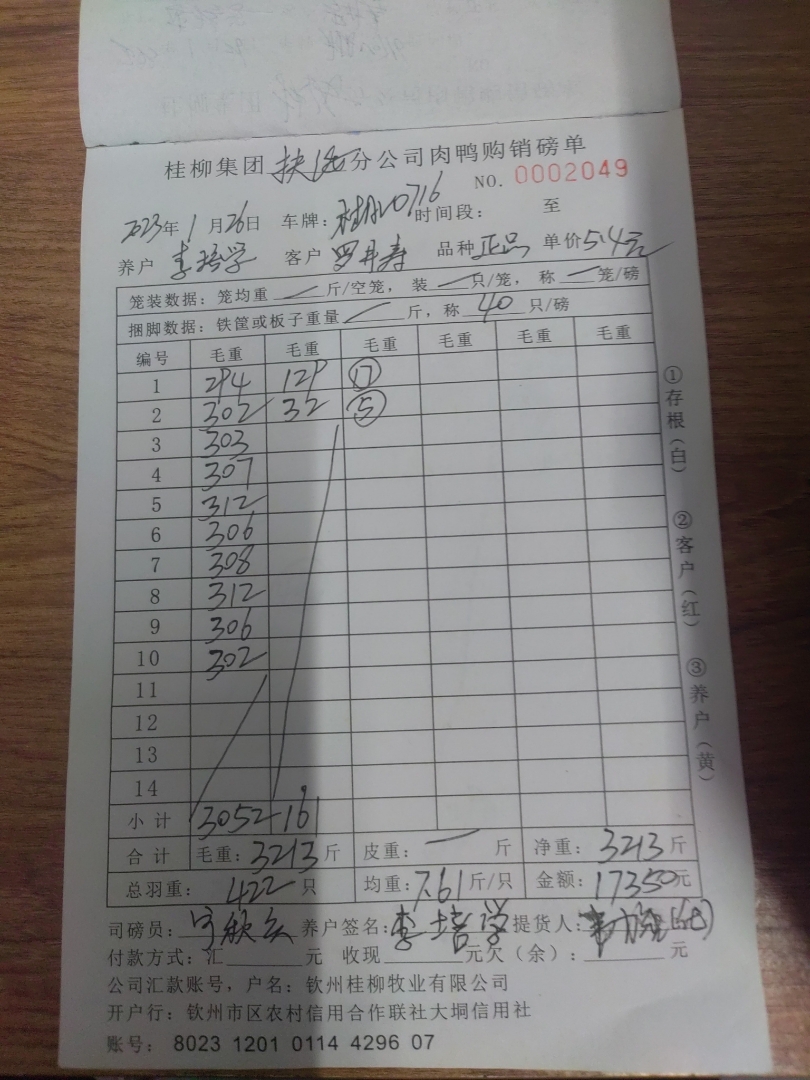 桂柳集团 分公司肉鸭购销磅单
NO. 0002049
2023年1月26日 车牌: 时间段: 至
养户 李培学 客户 罗井寿 品种 正品 单价5.4元
笼装数据: 笼均重 一 斤/空笼, 装 一 只/笼, 称 一 笼/磅
捆脚数据: 铁筐或板子重量 一 斤, 称 40 只/磅
编号 毛重 毛重 毛重 毛重 毛重 毛重
1 294 129 ⑰
2 302 32 ⑤
3 303
4 307
5 312
6 306
7 308
8 312
9 306
10 302
11
12
13
14
小计 3052 161
合计 毛重: 3213 斤 皮重: 一 斤 净重: 3213 斤
总羽重: 422 只 均重: 7.61 斤/只 金额: 17350元
司磅员: 养户签名: 李培学 提货人:
付款方式: 汇 元 收现 元欠(余): 元
公司汇款账号, 户名: 钦州桂柳牧业有限公司
开户行: 钦州市区农村信用合作联社大垌信用社
账号: 8023 1201 0114 4296 07
①存根(白) ②客户(红) ③养户(黄)